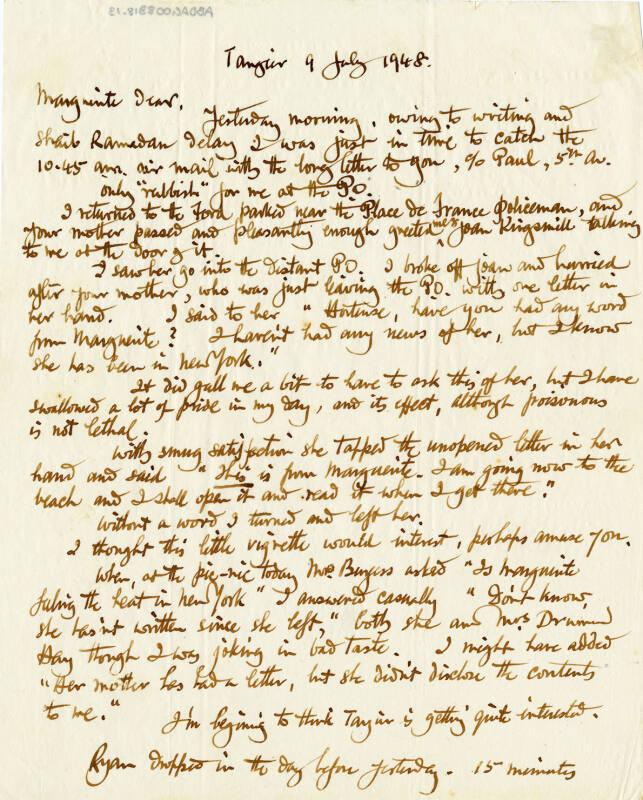 Tangier 9 July 1948.
Marguerite Dear,
Yesterday morning, owing to writing and
Shaib Ramadan delay I was just in time to catch the
10.45 am. air mail with the long letter to you, c/o Paul, 5th Av.
only "rubbish" for me at the P.O.
I returned to the Ford parked near the Place de France Policeman, and
your mother passed and pleasantly enough greeted me & Joan Kingsmill talking
to me at the door of it.
I saw her go into the distant P.O. I broke off Joan and hurried
after your mother, who was just leaving the P.O. with one letter in
her hand. I said to her "Hortense, have you had any word
from Marguerite? I haven't had any news of her, but I know
she has been in New York."
It did gall me a bit to have to ask this of her, but I have
swallowed a lot of pride in my day, and its effect, although poisonous
is not lethal.
With smug satisfection she tapped the unopened letter in her
hand and said "This is from Marguerite. I am going now to the
beach and I shall open it and read it when I get there."
Without a word I turned and left her.
I thought this little vignette would interest, perhaps amuse you.
When, at the pic-nic today Mrs Burgess asked "Is Marguerite
feeling the heat in New York" I answered casually "Don't know,
she hasn't written since she left," both she and Mrs Drummond
Hay though I was joking in bad taste. I might have added
"Her mother has had a letter, but she didn't disclose the contents
to me."
I'm begining to think Tangier is getting quite interested.
Ryan dropped in the day before yesterday. 15 minutes